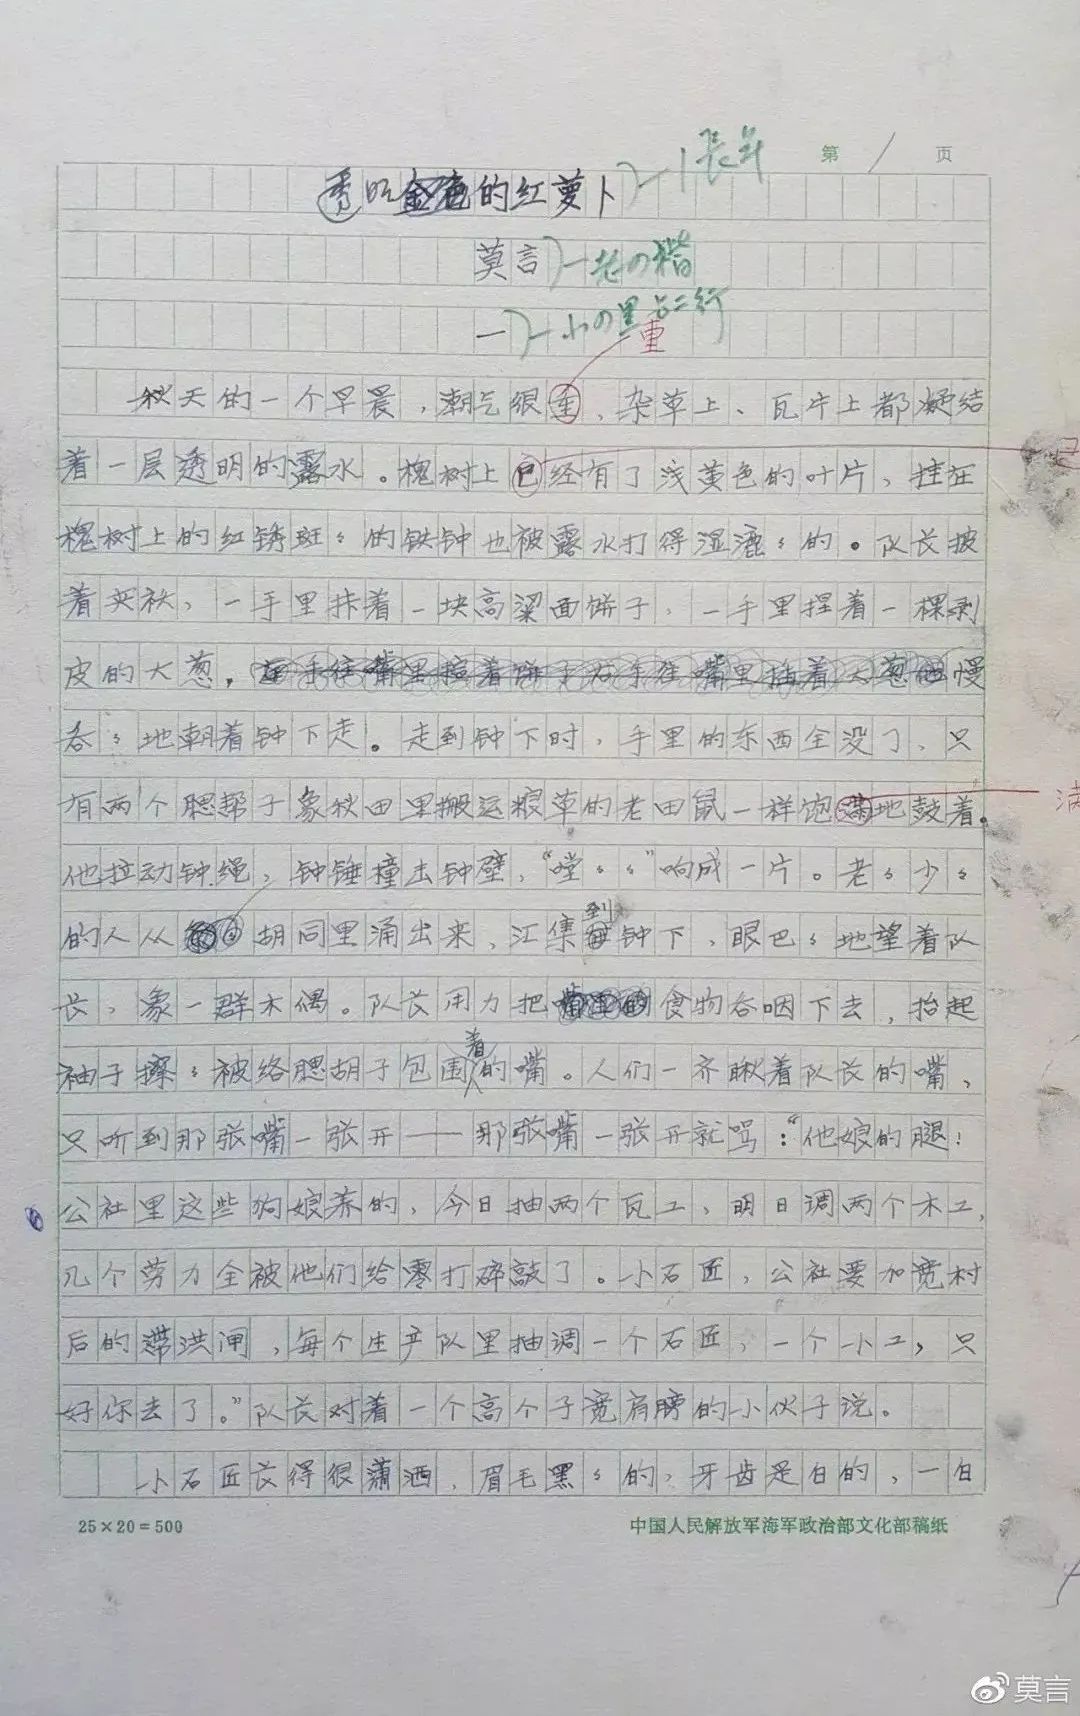 第 1 页
透明的红萝卜
莫言
一
重
秋天的一个早晨，潮气很重，杂草上、瓦片上都凝结
着一层透明的露水。槐树上已经有了浅黄色的叶片，挂在
槐树上的红锈斑々的铁钟也被露水打得湿漉々的。队长披
着夹袄，一手里拤着一块高粱面饼子，一手里捏着一棵剥
皮的大葱，慢
吞々地朝着钟下走。走到钟下时，手里的东西全没了，只
有两个腮帮子象秋田里搬运粮草的老田鼠一样饱满地鼓着。
满
他拉动钟绳，钟锤撞击钟壁，“嘡々々”响成一片。老々少々
的人从胡同里涌出来，汇集到钟下，眼巴々地望着队
长，象一群木偶。队长用力把食物吞咽下去，抬起
袖子擦々被络腮胡子包围着的嘴。人们一齐瞅着队长的嘴，
只听到那张嘴一张开——那张嘴一张开就骂：“他娘的腿！
公社里这些狗娘养的，今日抽两个瓦工，明日调两个木工，
几个劳力全被他们给零打碎敲了。小石匠，公社要加宽村
后的滞洪闸，每个生产队里抽调一个石匠，一个小工，只
好你去了。”队长对着一个高个子宽肩膀的小伙子说。
小石匠长得很潇洒，眉毛黑々的，牙齿是白的，一白
25×20=500
中国人民解放军海军政治部文化部稿纸
莫言